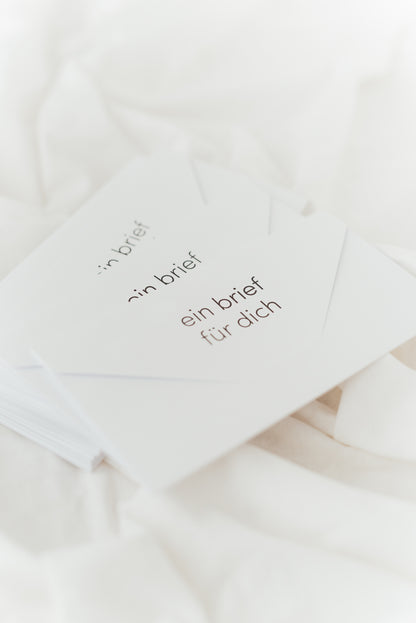 ein brief
ein brief
ein brief
für dich